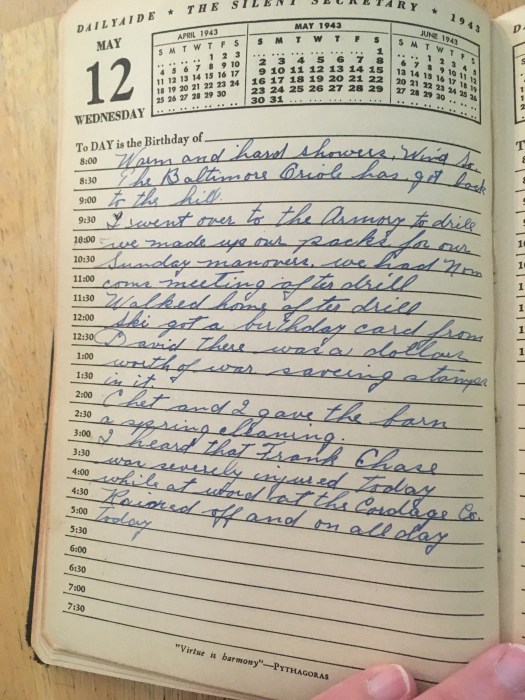 DAILYAIDE * THE SILENT SECRETARY * 1943
MAY
12
WEDNESDAY
APRIL 1943
S M T W T F S
1 2 3
4 5 6 7 8 9 10
11 12 13 14 15 16 17
18 19 20 21 22 23 24
25 26 27 28 29 30
MAY 1943
S M T W T F S
1
2 3 4 5 6 7 8
9 10 11 12 13 14 15
16 17 18 19 20 21 22
23 24 25 26 27 28 29
30 31
JUNE 1943
S M T W T F S
1 2 3 4 5
6 7 8 9 10 11 12
13 14 15 16 17 18 19
20 21 22 23 24 25 26
27 28 29 30
To DAY is the Birthday of
8:00 Warm and hard showers. Wing So.
8:30 The Baltimore Oriole has got back
9:00 to the hill.
9:30 I went over to the Armory to drill
10:00 we made up our packs for our
10:30 Sunday manovers. we had Non
11:00 coms meeting after drill
11:30 Walked home after drill
12:00 Ski got a birthday card from
12:30 David there was a dollars
1:00 worth of war savering stamps
1:30 in it.
2:00 Chet and I gave the barn
2:30 a spring cleaning.
3:00 I heard that Frank Chase
3:30 was severely injured today
4:00 while at word at the Cordage Co.
4:30 Rained off and on all day
5:00 today
5:30
6:00
6:30
7:00
7:30
"Virtue is harmony"—PYTHAGORAS